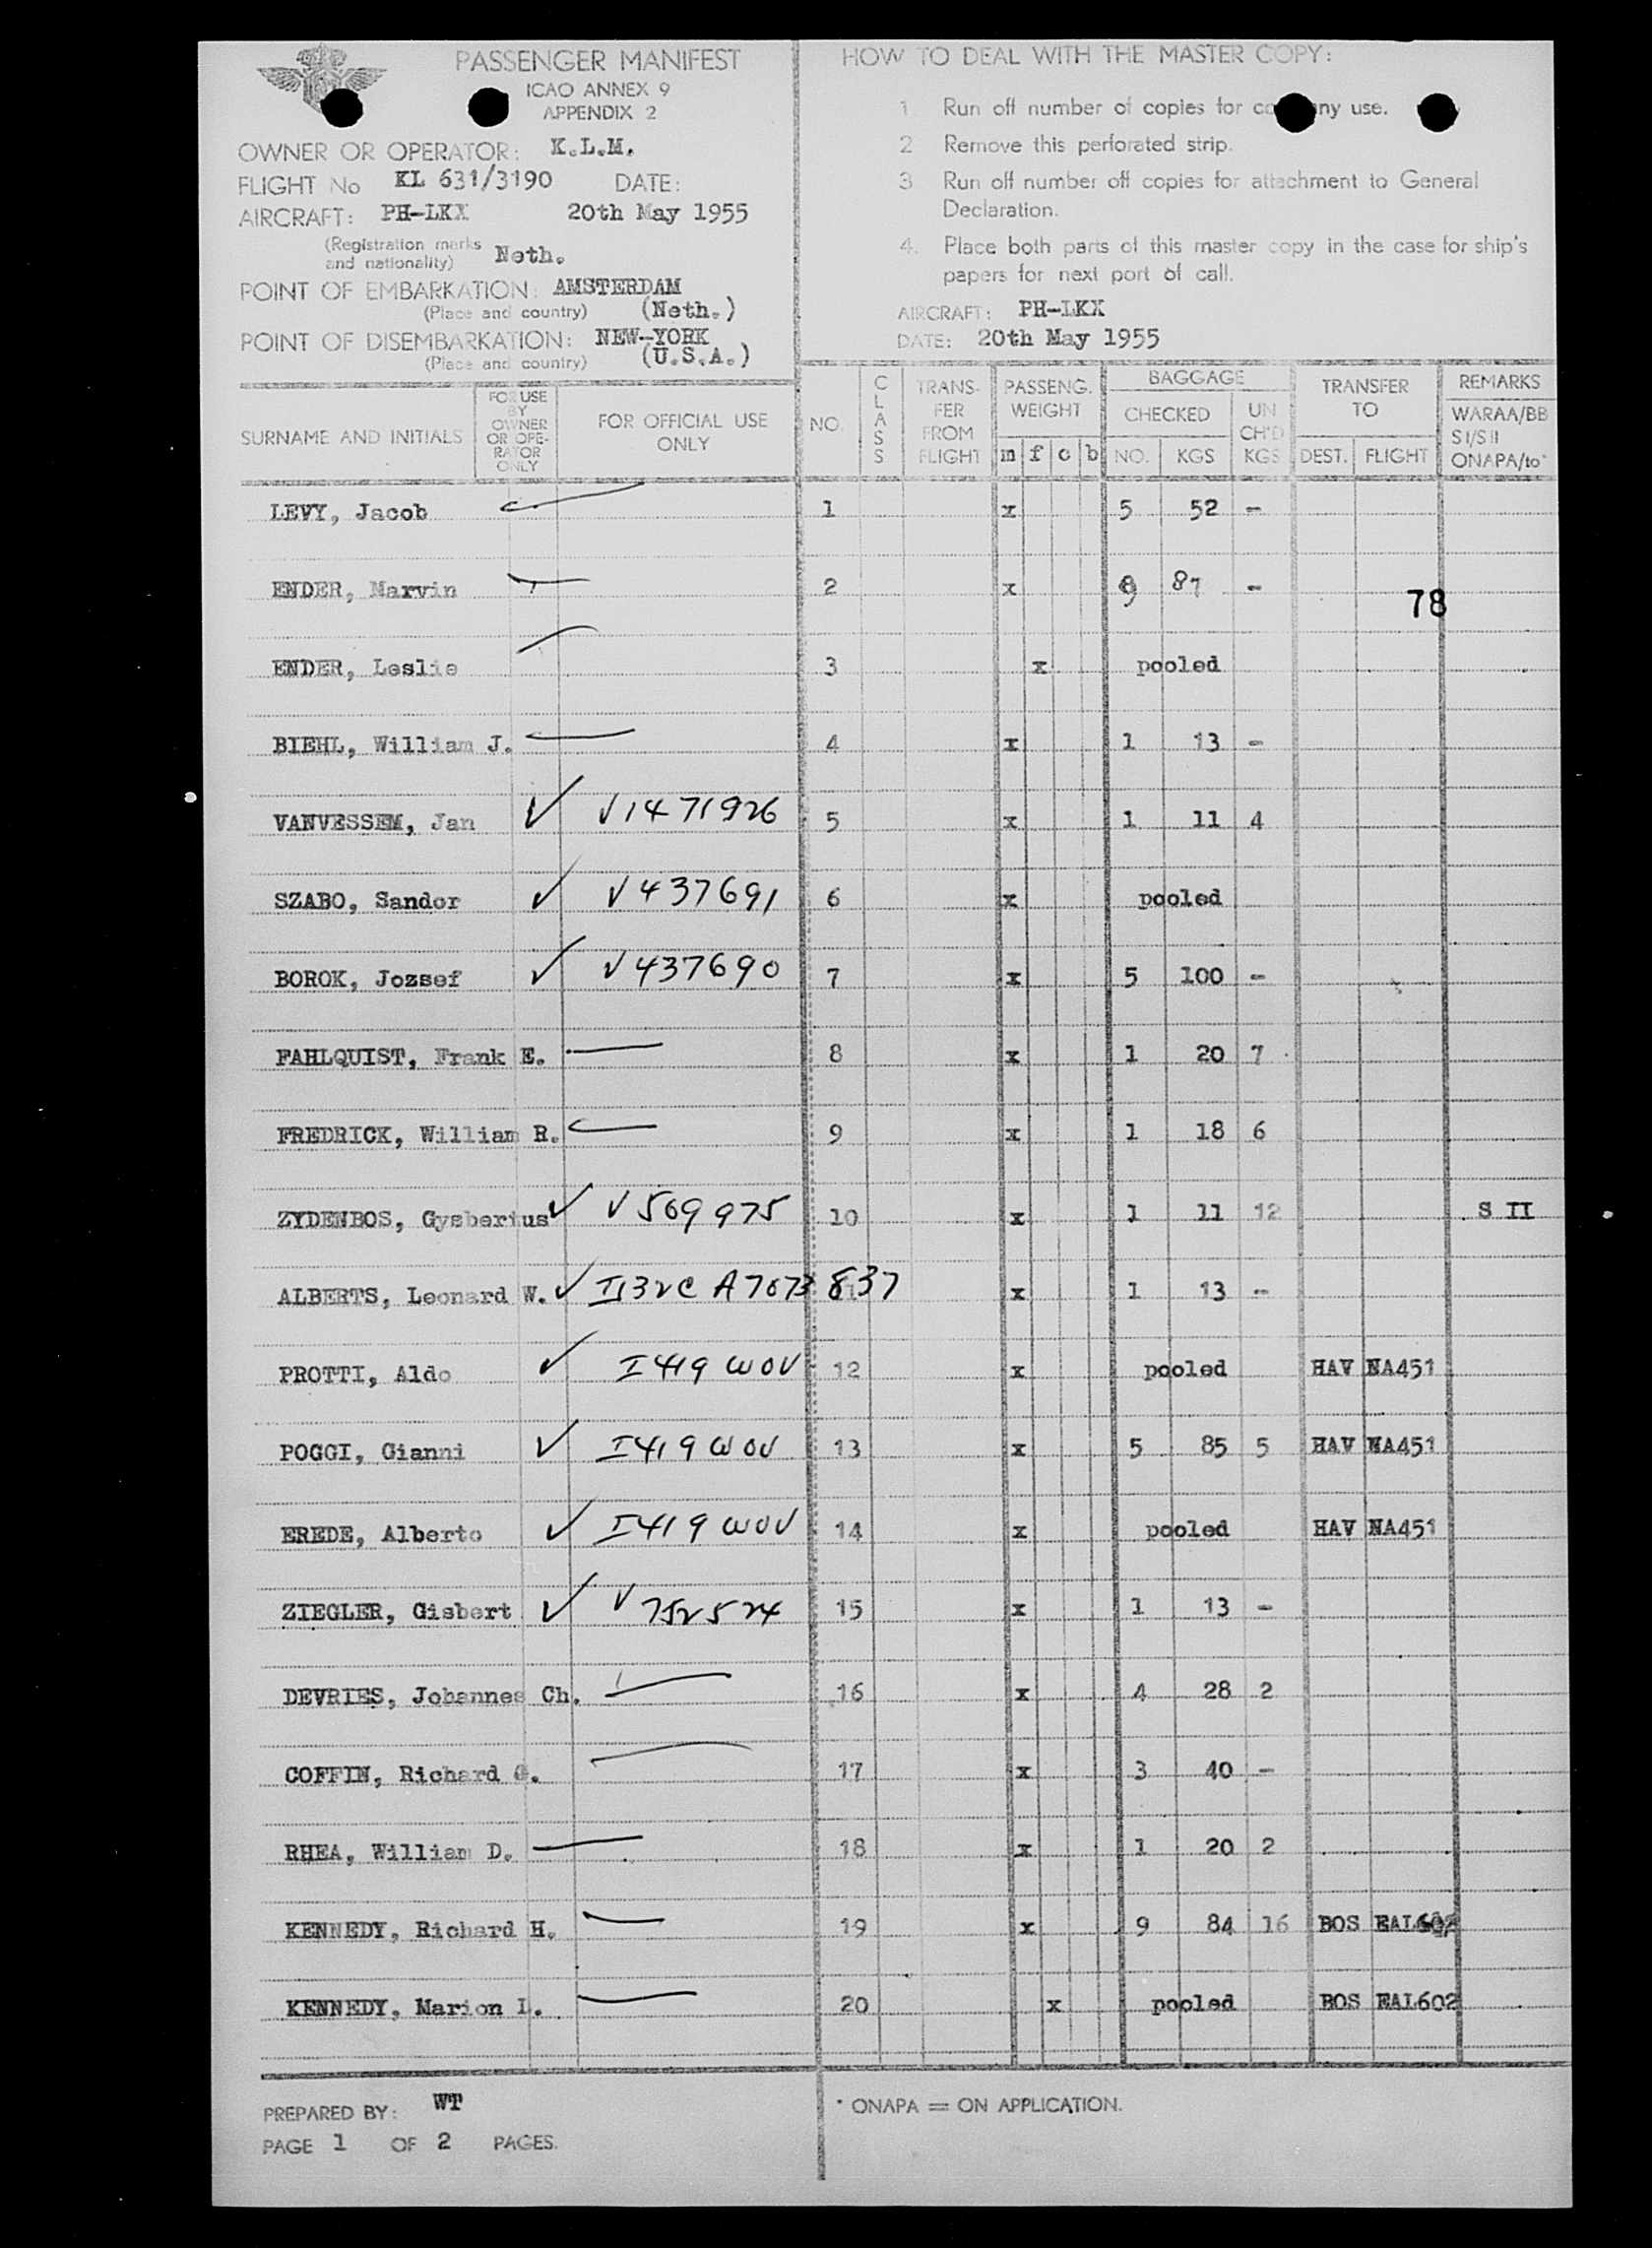 PASSENGER MANIFEST
ICAO ANNEX 9
APPENDIX 2
OWNER OR OPERATOR: K.L.M.
FLIGHT No KL 631/3190 DATE:
AIRCRAFT: PH-LKX 20th May 1955
(Registration marks and nationality) Neth.
POINT OF EMBARKATION: AMSTERDAM
(Place and country) (Neth.)
POINT OF DISEMBARKATION: NEW-YORK
(Place and country) (U.S.A.)
HOW TO DEAL WITH THE MASTER COPY:
1. Run off number of copies for company use.
2 Remove this perforated strip.
3 Run off number off copies for attachment to General
Declaration.
4. Place both parts of this master copy in the case for ship's
papers for next port of call.
AIRCRAFT: PH-LKX
DATE: 20th May 1955
SURNAME AND INITIALS FOR USE BY OWNER OR OPE-RATOR ONLY FOR OFFICIAL USE ONLY NO. CLASS TRANS-FER FROM FLIGHT PASSENG. WEIGHT m f c b BAGGAGE CHECKED NO. KGS UN CH'D KGS TRANSFER TO DEST. FLIGHT REMARKS WARAA/BB SI/SII ONAPA/to*
LEVY, Jacob 1 x 5 52 -
ENDER, Marvin 2 x 9 87 -
78
ENDER, Leslie 3 x pooled
BIEHL, William J. 4 x 1 13 -
VANVESSEM, Jan ✓ V1471926 5 x 1 11 4
SZABO, Sandor ✓ V437691 6 x pooled
BOROK, Jozsef ✓ V437690 7 x 5 100 -
FAHLQUIST, Frank E. 8 x 1 20 7
FREDRICK, William R. 9 x 1 18 6
ZYDENBOS, Gysbertus ✓ V509975 10 x 1 11 12 S II
ALBERTS, Leonard W. ✓ A7673837 x 1 13 -
PROTTI, Aldo ✓ I419 WOV 12 x pooled HAV NA451
POGGI, Gianni ✓ I419 WOV 13 x 5 85 5 HAV NA451
EREDE, Alberto ✓ I419 WOV 14 x pooled HAV NA451
ZIEGLER, Gisbert ✓ V752524 15 x 1 13 -
DEVRIES, Johannes Ch. 16 x 4 28 2
COFFIN, Richard G. 17 x 3 40 -
RHEA, William D. 18 x 1 20 2
KENNEDY, Richard H. 19 x 9 84 16 BOS EAL602
KENNEDY, Marion L. 20 x pooled BOS EAL602
PREPARED BY: WT
PAGE 1 OF 2 PAGES.
* ONAPA = ON APPLICATION.